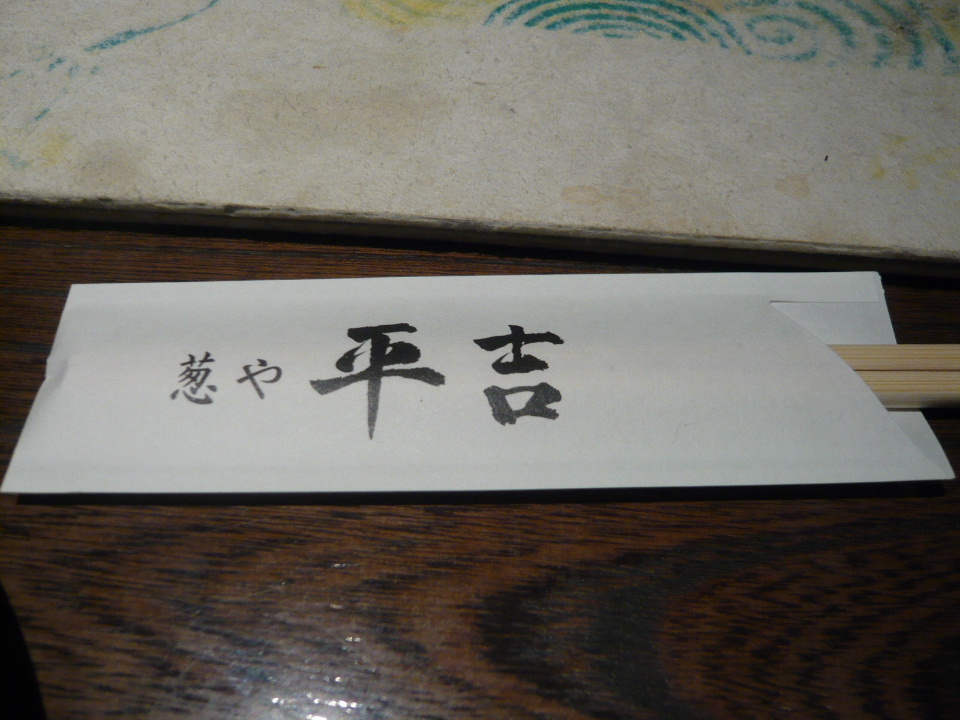 葱や平吉